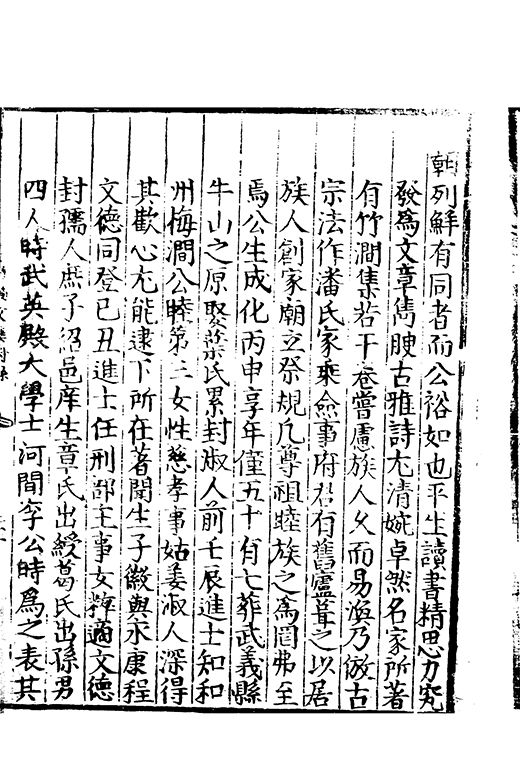 朝列鮮有同者而公裕如也平生讀書精思力究
發為文章雋腴古雅詩尤清婉卓然名家所著
有竹澗集若干卷嘗慮族人久而易渙乃倣古
宗法作潘氏家乘僉事府君有舊廬葺之以居
族人創家廟立祭規凡尊祖睦族之為罔弗至
焉公生成化丙申享年僅五十有七葬武義縣
牛山之原娶葉氏累封淑人前壬辰進士知和
州梅澗公睦第三女性慈孝事姑姜淑人深得
其歡心尤能逮下所在著聞生子徽與永康程
文德同登己丑進士任刑部主事女釋適文德
封孺人庶子紹邑庠生章氏出綬葛氏出孫男
四人時武英殿大學士河間李公時為之表其